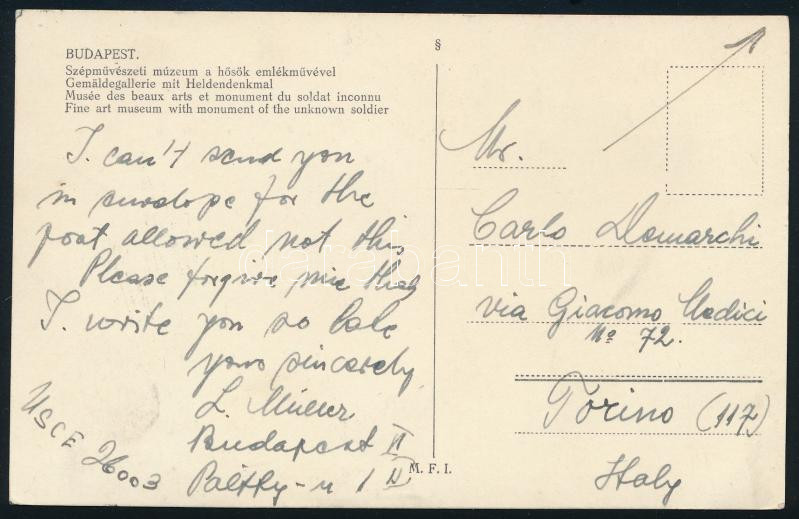 BUDAPEST.
Szépművészeti múzeum a hősök emlékművével
Gemäldegallerie mit Heldendenkmal
Musée des beaux arts et monument du soldat inconnu
Fine art museum with monument of the unknown soldier
I can't send you
in envelope for the
post allowed not this
Please forgive me that
I write you so late
yours sincerely
L. Müller
Budapest II
Pálffy-u 1
USCE 26003
§
M. F. I.
Mr.
Carlo Demarchi
via Giacomo Medici
No 72.
Torino (117)
Italy
databanth